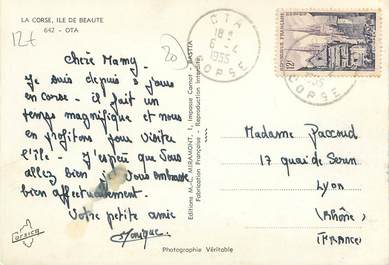 LA CORSE, ILE DE BEAUTE
642 - OTA
12f
20
OTA
18 H
6 - 4
1955
CORSE
RÉPUBLIQUE FRANÇAISE
12F
1955
CORSE
Chère Mamy.
Je suis depuis 2 jours
en corse. il fait un
temps magnifique et nous
en profitons pour visiter
l'île. J'espère que Vous
allez bien je Vous embrasse
bien affectueusement.
Votre petite amie
Monique.
Corsica
Editions M.-C. MIRAMONT, 1, Impasse Carnot - BASTIA
Fabrication Française - Reproduction Interdite
Madame Paccoud
17 quai de Serin
Lyon
(Rhône)
(FRANCE)
Photographie Véritable